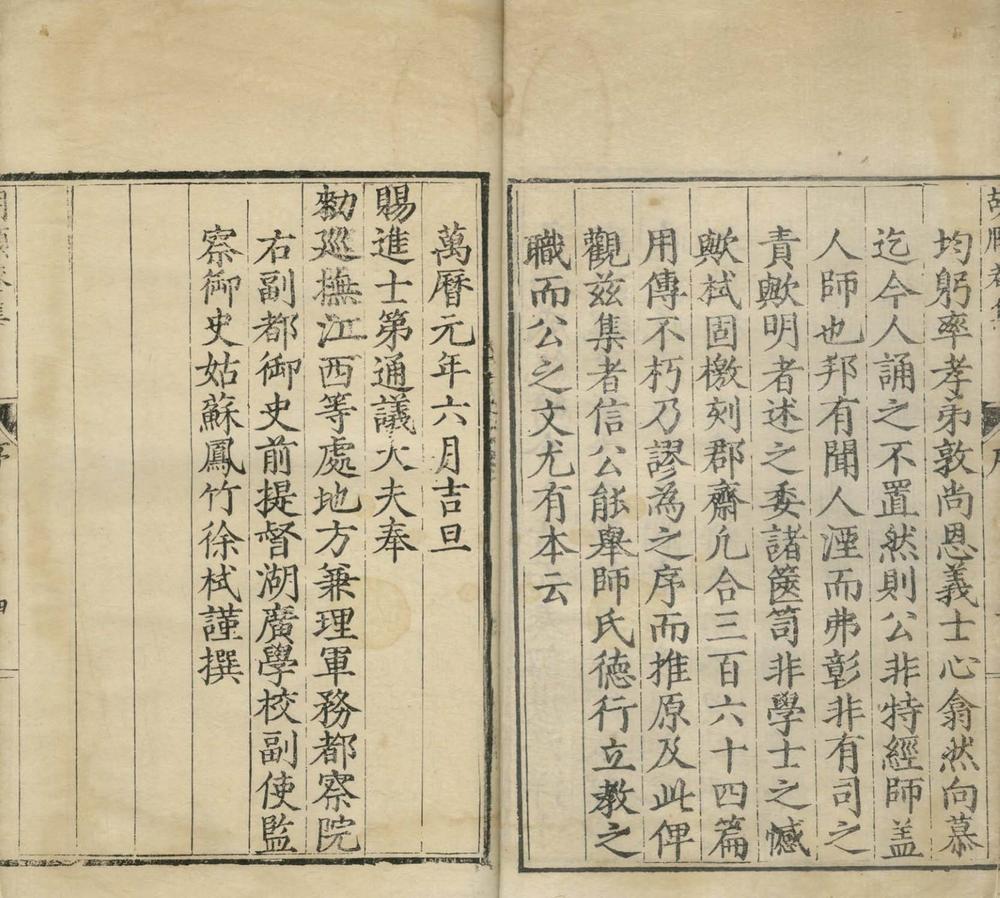 均躬率孝弟敦尚恩義士心翕然向慕
迄今人誦之不置然則公非特經師盖
人師也邦有聞人湮而弗彰非有司之
責歟明者述之委諸篋笥非學士之憾
歟栻固檄刻郡齋凢合三百六十四篇
用傳不朽乃謬為之序而推原及此俾
觀兹集者信公能舉師氏德行立教之
職而公之文尤有本云
萬曆元年六月吉旦
賜進士第通議大夫奉
勑巡撫江西等處地方兼理軍務都察院
右副都御史前提督湖廣學校副使監
察御史姑蘇鳳竹徐栻謹撰